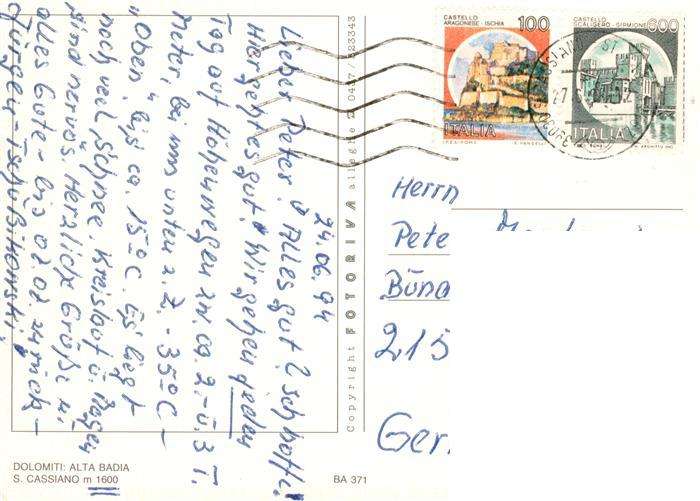 24.06.94
Lieber Peter! Alles gut? Ich hoffe.
Hier geht es gut. Wir gehen jeden
Tag auf Höhenwegen zw. ca. 2.- u. 3 T.
Meter, bei uns unten z. Z. - 35°C -
"Oben" bis ca. 15°C. Es liegt
noch viel Schnee. Kreislauf u. Magen
sind nervös. Herzliche Grüße u.
alles Gute - bis 02.07. zurück -
Jürgen
Copyright FOTORIVA alleghe 0437 523343
DOLOMITI: ALTA BADIA
S. CASSIANO m 1600
BA 371
CASTELLO
ARAGONESE - ISCHIA
100
ITALIA
CASTELLO
SCALIGERO - SIRMIONE
600
ITALIA
Herrn
Pete
Büna
215
Ger.